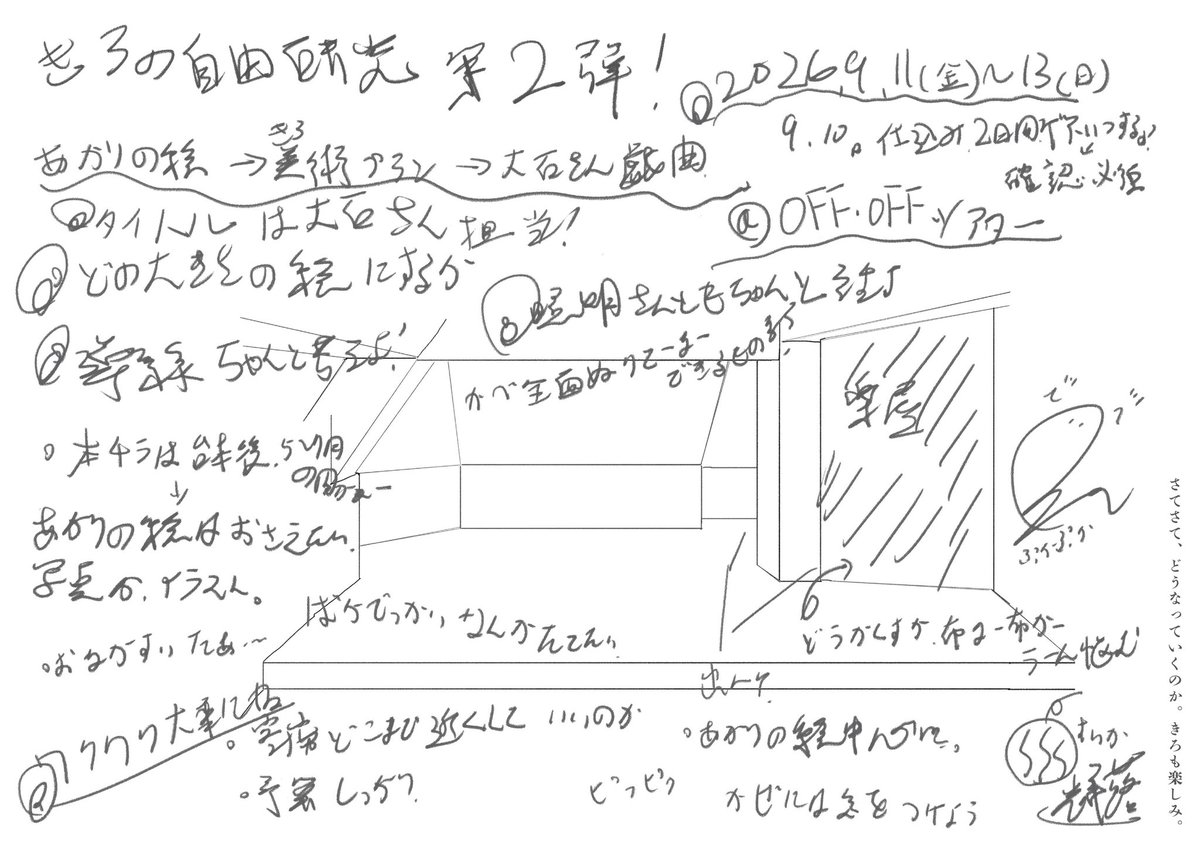 きろの自由研究 第2弾!
2026,9,11(金)〜13(日)
9.10。仕込み 2日間
確認必須
きろ
あかりの絵→美術プラン→大石さん戯曲
タイトルは大石さん担当!
OFF・OFFシアター
どの大きさの絵にするか
照明さんともちゃんと
導線ちゃんと考えるよ!
かべ全面ぬりてーなー
できるもの
楽屋
で
で
本チラは台本後、
あかりの絵はおさえたい、
写真か、イラスト。
ぷかーぷか
ばケでっかい なんかたてたい
どうかくすか、布なー布かー
うーん悩む
おなかすいたぁ〜
出ハケ
ワクワク大事に
客席どこまで近くしていいのか
予算しっかり
あかりの絵中心に、
ピコピコ
かぜには気をつけよう
さてさて、どうなっていくのか。きろも楽しみ。